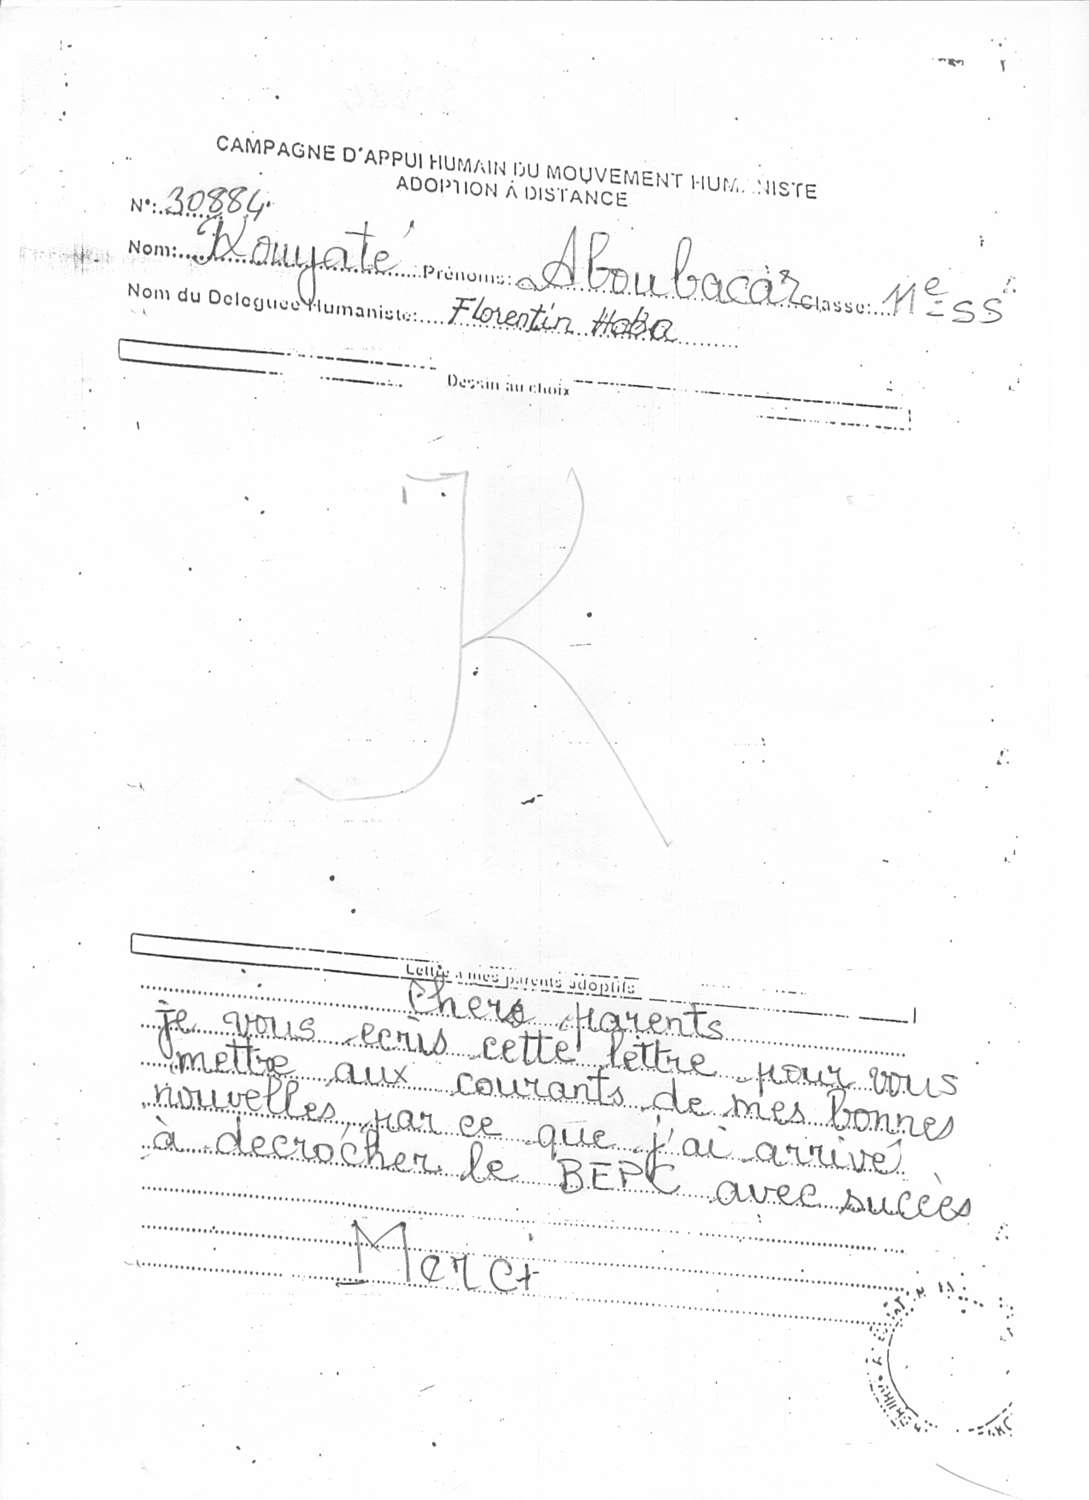 CAMPAGNE D'APPUI HUMAIN DU MOUVEMENT HUMANISTE
ADOPTION À DISTANCE
N°: 30884
Nom: Kouyaté Prénoms: Aboubacar Classe: 11e SS
Nom du Deleguée Humaniste: Florentin Haba
Dessin au choix
K
Lettre a mes parents adoptifs
Chers parents
je vous ecris cette lettre pour vous
mettre aux courants de mes bonnes
nouvelles par ce que j'ai arrivé
à decrocher le BEPC avec succès
Merci